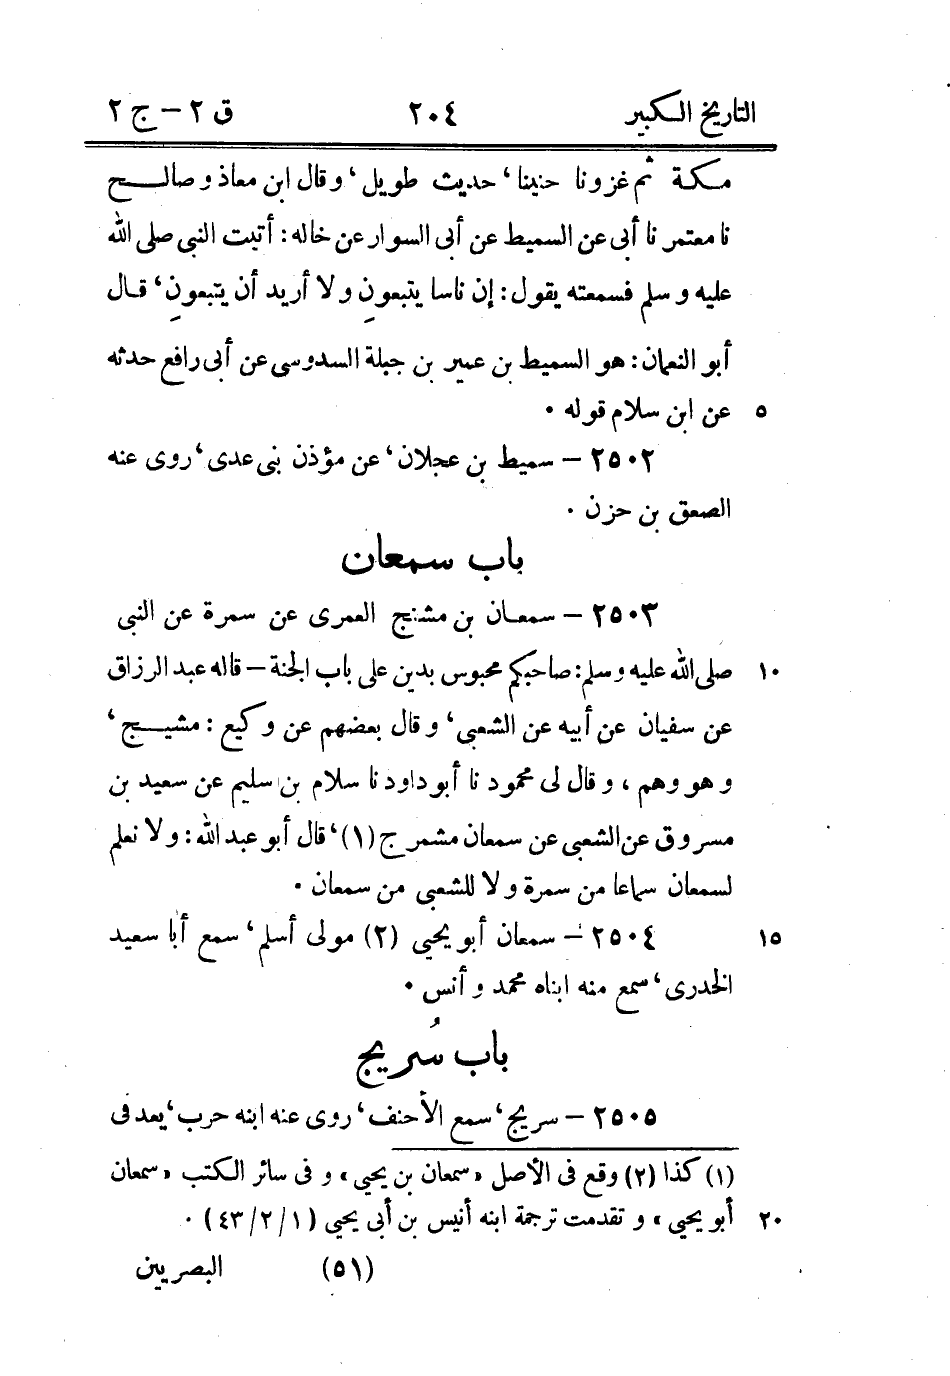 التاريخ الكبير ٢٠٤ ق ٢ – ج ٢
مكة ثم غزونا حنينا، حديث طويل، وقال ابن معاذ وصالح
نا معتمر نا أبى عن السميط عن أبى السوار عن خاله: أتيت النبى صلى الله
عليه وسلم فسمعته يقول: إن ناسا يتبعونِ ولا أريد أن يتبعونِ، قال
أبو النعمان: هو السميط بن عمير بن جبلة السدوسى عن أبى رافع حدثه
عن ابن سلام قوله ٠ ٥
٢٥٠٢ – سميط بن عجلان، عن مؤذن بنى عدى، روى عنه
الصعق بن حزن ٠
باب سمعان
٢٥٠٣ – سمعان بن مشنج العمرى عن سمرة عن النبى
صلى الله عليه وسلم: صاحبكم محبوس بدين على باب الجنة – قاله عبد الرزاق ١٠
عن سفيان عن أبيه عن الشعبى، وقال بعضهم عن وكيع: مشيج،
وهو وهم، وقال لى محمود نا أبو داود نا سلام بن سليم عن سعيد بن
مسروق عن الشعبى عن سمعان مشمرج (١)، قال أبو عبد الله: ولا نعلم
لسمعان سماعا من سمرة ولا للشعبى من سمعان ٠
٢٥٠٤ – سمعان أبو يحيى (٢) مولى أسلم، سمع أبا سعيد ١٥
الخدرى، سمع منه ابناه محمد وأنس ٠
باب سُريج
٢٥٠٥ – سريج، سمع الأحنف، روى عنه ابنه حرب، يعد فى
(١) كذا (٢) وقع فى الأصل «سمعان بن يحيى» وفى سائر الكتب «سمعان
أبو يحيى» وتقدمت ترجمة ابنه أنيس بن أبى يحيى (١/٢/٤٣) ٠ ٢٠
(٥١) البصريين